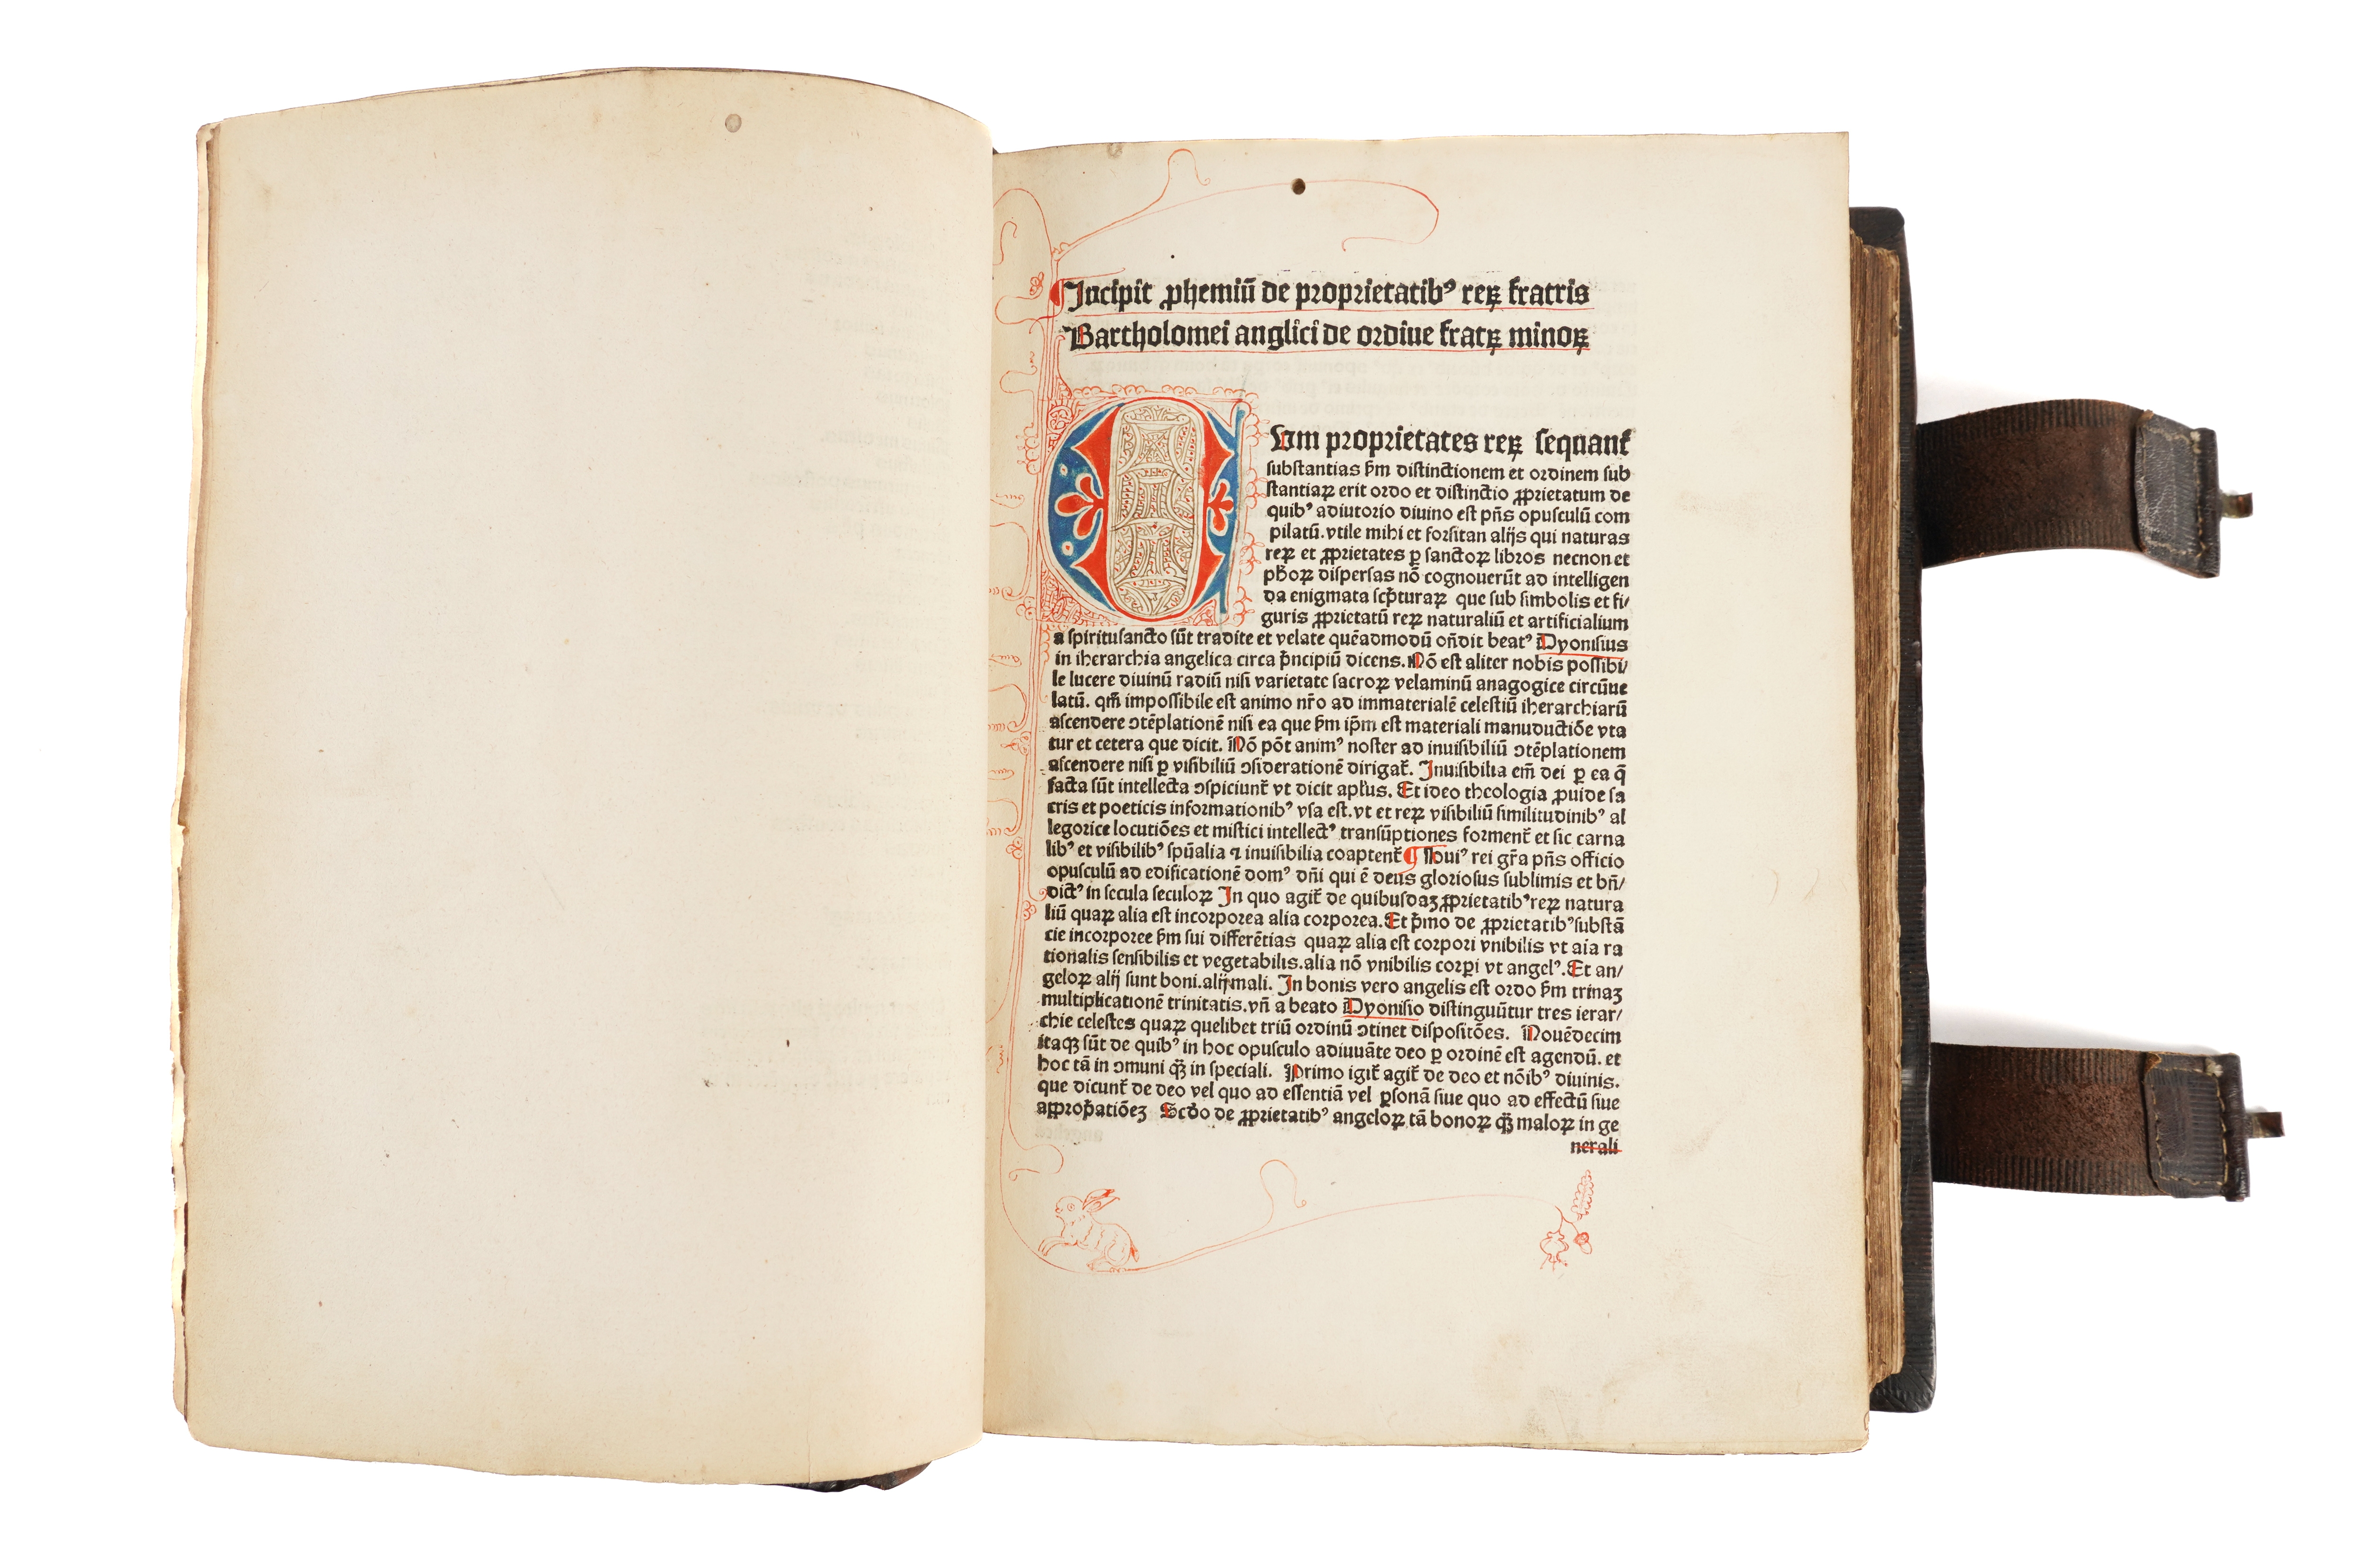 Incipit ꝓhemiũ de proprietatibꝰ reꝝ fratris
Bartholomei anglici de ordine fratꝝ minoꝝ
Cum proprietates reꝝ sequant᷑
substantias ẜm distinctionem et ordinem sub
stantiaꝝ erit ordo et distinctio ꝓprietatum de
quibꝰ adiutorio diuino est p̃ñs opusculũ com
pilatũ. vtile mihi et forsitan alijs qui naturas
reꝝ et ꝓprietates ꝑ sanctoꝝ libros necnon et
ph̃oꝝ dispersas nõ cognouerũt ad intelligen
da enigmata scp̃turaꝝ que sub simbolis et fi/
guris ꝓprietatũ reꝝ naturaliũ et artificialium
a spiritusancto sũt tradite et velate quẽadmodũ oñdit beatꝰ Dyonisius
in iherarchia angelica circa p̃ncipiũ dicens. Nõ est aliter nobis possibi/
le lucere diuinũ radiũ nisi varietate sacroꝝ velaminũ anagogice circũue
latũ. qm̃ impossibile est animo nr̃o ad immaterialẽ celestiũ iherarchiarũ
ascendere ↄtẽplationẽ nisi ea que ẜm ip̃m est materiali manuductiõe vta
tur et cetera que dicit. Nõ põt animꝰ noster ad inuisibiliũ ↄtẽplationem
ascendere nisi ꝑ visibiliũ ↄsiderationẽ dirigat᷑. Inuisibilia em̃ dei ꝑ ea q̃
facta sũt intellecta ↄspiciunt᷑ vt dicit apl̃us. Et ideo theologia ꝓuide sa
cris et poeticis informationibꝰ vsa est. vt et reꝝ visibiliũ similitudinibꝰ al
legorice locutiões et mistici intellectꝰ transũptiones forment᷑ et sic carna
libꝰ et visibilibꝰ spũalia ⁊ inuisibilia coaptent᷑ ¶ Noui rei gr̃a p̃ñs officio
opusculũ ad edificationẽ domꝰ dñi qui ẽ deus gloriosus sublimis et bñ/
dictꝰ in secula seculoꝝ In quo agit᷑ de quibusdaʒ ꝓprietatibꝰ reꝝ natura
liũ quaꝝ alia est incorporea alia corporea. Et p̃mo de ꝓprietatibꝰ substã
cie incorporee ẜm sui differẽtias quaꝝ alia est corpori vnibilis vt aĩa ra
tionalis sensibilis et vegetabilis. alia nõ vnibilis corꝑi vt angelꝰ. Et an/
geloꝝ alij sunt boni. alij mali. In bonis vero angelis est ordo ẜm trinaʒ
multiplicationẽ trinitatis. vñ a beato Dyonisio distinguũtur tres ierar/
chie celestes quaꝝ quelibet triũ ordinũ ↄtinet dispositões. Nouẽdecim
itaqʒ sũt de quibꝰ in hoc opusculo adiuuãte deo ꝑ ordinẽ est agendũ. et
hoc tã in ↄmuni qʒ̃ in speciali. Primo igit᷑ agit᷑ de deo et nõibꝰ diuinis.
que dicunt᷑ de deo vel quo ad essentiã vel ꝑsonã siue quo ad effectũ siue
approp̃atiõeʒ Scd̃o de ꝓprietatibꝰ angeloꝝ tã bonoꝝ qʒ̃ maloꝝ in ge
nerali